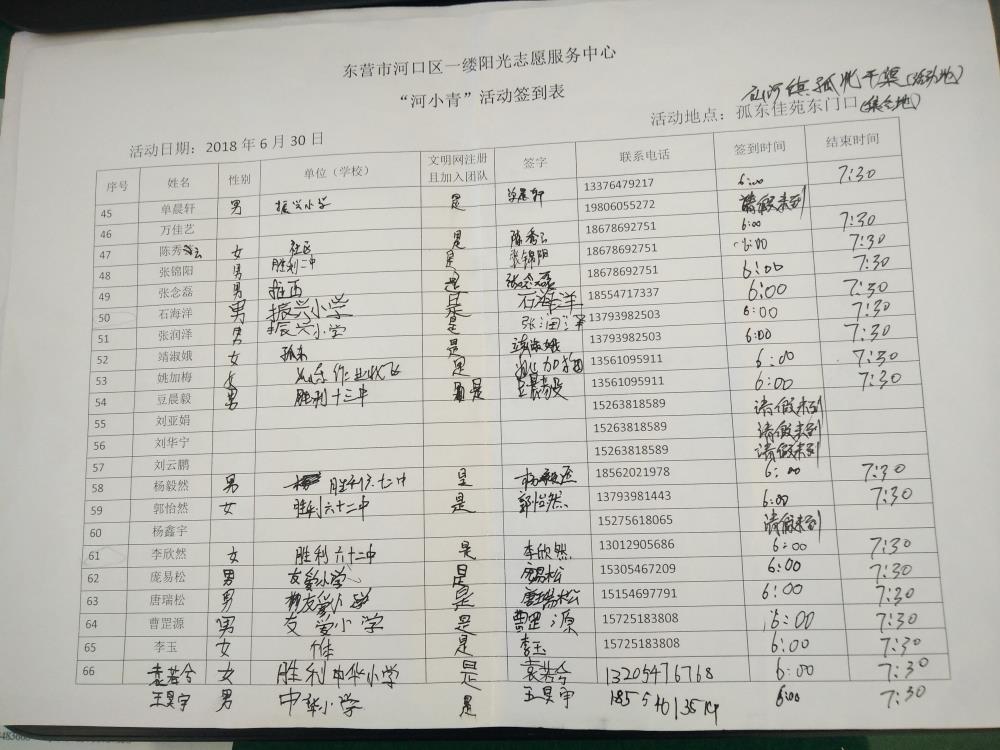 东营市河口区一缕阳光志愿服务中心
“河小青”活动签到表
活动日期：2018 年 6 月 30 日
活动地点：孤东佳苑东门口(集合地) (活动地)
序号 姓名 性别 单位（学校） 文明网注册且加入团队 签字 联系电话 签到时间 结束时间
45 单晨轩 男 振兴小学 是 单晨轩 13376479217 6:00 7:30
46 万佳艺 19806055272 请假未到
47 陈秀云 女 社区 是 陈秀云 18678692751 6:00 7:30
48 张锦阳 男 胜利二中 是 张锦阳 18678692751 6:00 7:30
49 张念磊 男 是 张念磊 18678692751 6:00 7:30
50 石海洋 男 振兴小学 是 石海洋 18554717337 6:00 7:30
51 张润泽 男 振兴小学 是 张润泽 13793982503 6:00 7:30
52 靖淑娥 女 孤东 是 靖淑娥 13793982503 6:00 7:30
53 姚加梅 女 是 姚加梅 13561095911 6:00 7:30
54 豆晨毅 男 胜利十三中 是 豆晨毅 13561095911 6:00 7:30
55 刘亚娟 15263818589 请假未到
56 刘华宁 15263818589 请假未到
57 刘云鹏 15263818589 请假未到
58 杨毅然 男 胜利六十二中 是 杨毅然 18562021978 6:00 7:30
59 郭怡然 女 胜利六十二中 是 郭怡然 13793981443 6:00 7:30
60 杨鑫宇 15275618065 请假未到
61 李欣然 女 胜利六十二中 是 李欣然 13012905686 6:00 7:30
62 庞易松 男 友爱小学 是 庞易松 15305467209 6:00 7:30
63 唐瑞松 男 友爱小学 是 唐瑞松 15154697791 6:00 7:30
64 曹罡源 男 友爱小学 是 曹罡源 15725183808 6:00 7:30
65 李玉 女 是 李玉 15725183808 6:00 7:30
66 袁若兮 女 胜利中华小学 是 袁若兮 13205476768 6:00 7:30
王昊宇 男 中华小学 是 王昊宇 6:00 7:30